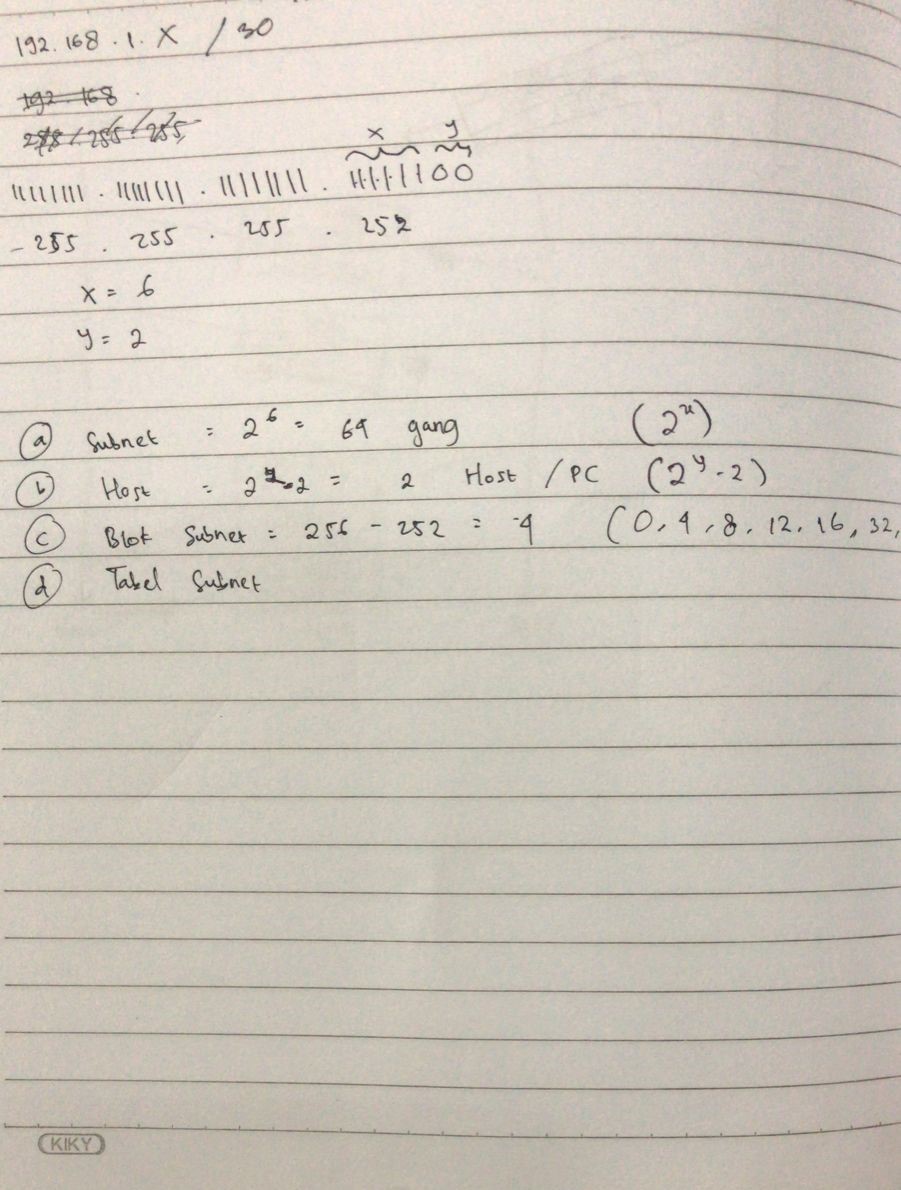 192.168.1.X /30
192.168.
255.255.255
11111111.11111111.11111111.11111100
x y
-255.255.255.252
x = 6
y = 2
a Subnet = 2^6 = 64 gang (2^x)
b Host = 2^2-2 = 2 Host /PC (2^y-2)
c Blok Subnet = 256 - 252 = 4 (0, 4, 8, 12, 16, 32,
d Tabel Subnet
KIKY